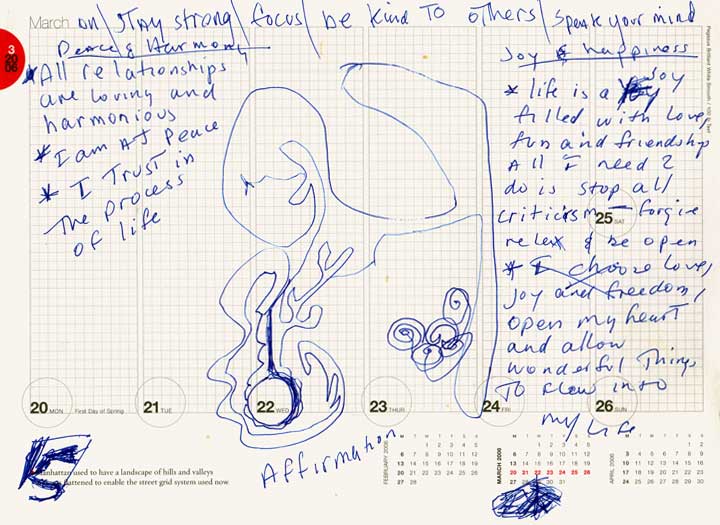 March on / stay strong / focus / be kind to others / speak your mind
3
20
06
Peace & Harmony
* All relationships
are loving and
harmonious
* I am At peace
* I Trust in
The process
of life
Joy & happiness
* life is a Joy
filled with Love,
fun and friendship
All I need 2
do is stop all
criticism — forgive
relax & be open
* I choose Love,
Joy and freedom,
open my heart
and allow
wonderful Things
To flow into
my life
25 SAT
20 MON First Day of Spring
21 TUE
22 WED
23 THUR
24 FRI
26 SUN
Affirmation
Manhattan used to have a landscape of hills and valleys
flattened to enable the street grid system used now.
FEBRUARY 2006
M T W T F S S
1 2 3 4 5
6 7 8 9 10 11 12
13 14 15 16 17 18 19
20 21 22 23 24 25 26
27 28
MARCH 2006
M T W T F S S
1 2 3 4 5
6 7 8 9 10 11 12
13 14 15 16 17 18 19
20 21 22 23 24 25 26
27 28 29 30 31
APRIL 2006
M T W T F S S
1 2
3 4 5 6 7 8 9
10 11 12 13 14 15 16
17 18 19 20 21 22 23
24 25 26 27 28 29 30